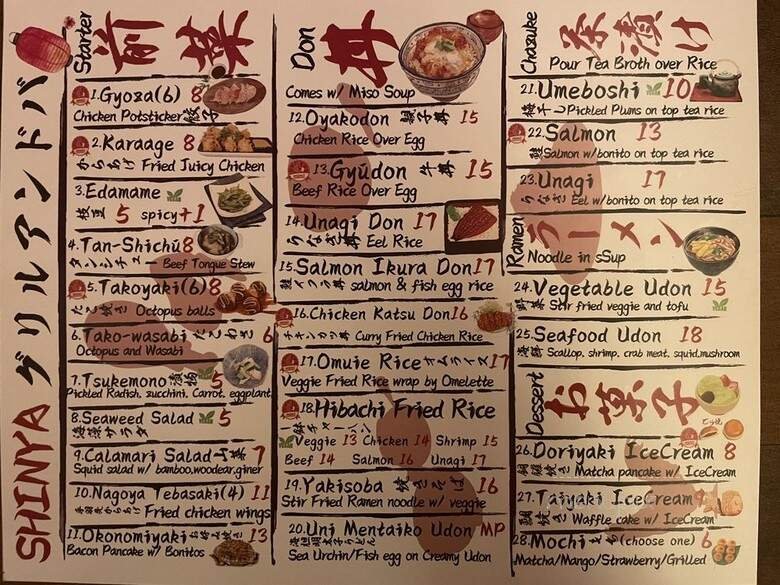 SHINYA グリルアンドバー
Starter 前菜
1.Gyoza(6) 8
Chicken Potsticker 餃子
2.Karaage 8
からあげ Fried Juicy Chicken
3.Edamame
枝豆 5 spicy+1
4.Tan-Shichū 8
タンシチュー Beef Tongue Stew
5.Takoyaki(6)8
たこ焼き Octopus balls
6.Tako-wasabi たこわさび 6
Octopus and Wasabi
7.Tsukemono 漬物 5
Pickled Radish, zucchini, Carrot, eggplant
8.Seaweed Salad 5
海藻サラダ
9.Calamari Salad 7
Squid salad w/ bamboo,woodear,giner
10.Nagoya Tebasaki(4) 11
手羽先からあげ Fried chicken wings
11.Okonomiyaki お好み焼き 13
Bacon Pancake w/ Bonitos
Don 丼
Comes w/ Miso Soup
12.Oyakodon 親子丼 15
Chicken Rice Over Egg
13.Gyūdon 牛丼 15
Beef Rice Over Egg
14.Unagi Don 17
うなぎ丼 Eel Rice
15.Salmon Ikura Don17
鮭イクラ丼 salmon & fish egg rice
16.Chicken Katsu Don16
チキンカツ丼 Curry Fried Chicken Rice
17.Omuie Rice オムライス 17
Veggie Fried Rice wrap by Omelette
18.Hibachi Fried Rice
Veggie 13 Chicken 14 Shrimp 15
Beef 14 Salmon 16 Unagi 17
19.Yakisoba 焼きそば 16
Stir Fried Ramen noodle w/ veggie
20.Uni Mentaiko Udon MP
海胆明太子うどん
Sea Urchin/Fish egg on Creamy Udon
Chazuke 茶漬け
Pour Tea Broth over Rice
21.Umeboshi 10
梅干し Pickled Plums on top tea rice
22.Salmon 13
鮭 Salmon w/bonito on top tea rice
23.Unagi 17
うなぎ Eel w/bonito on top tea rice
Ramen ラーメン
Noodle in sSup
24.Vegetable Udon 15
野菜 Stir fried veggie and tofu
25.Seafood Udon 18
海鮮 Scallop, shrimp, crab meat, squid,mushroom
Dessert お菓子
26.Doriyaki IceCream 8
銅鑼焼き Matcha pancake w/ IceCream
27.Taiyaki IceCream 9
鯛焼き Waffle cake w/ IceCream
28.Mochi もち(choose one) 6
Matcha/Mango/Strawberry/Grilled